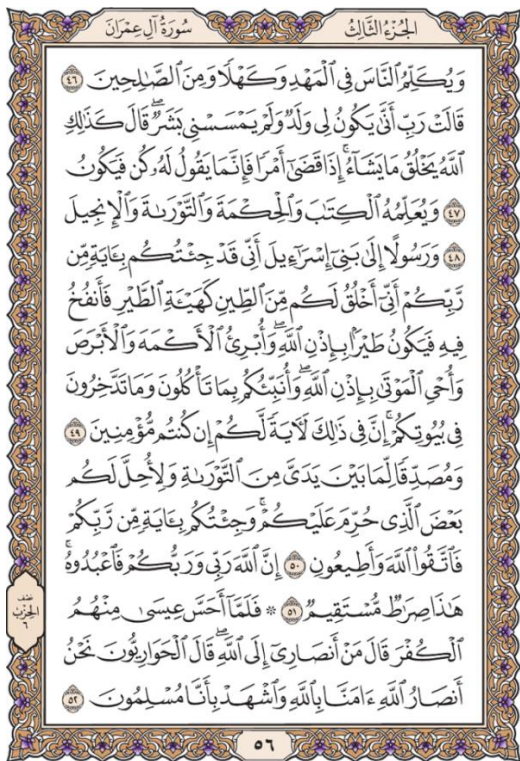 سُورَةُ آلِ عِمْرَانَ
الجُزْءُ الثَّالِثُ
وَيُكَلِّمُ ٱلنَّاسَ فِي ٱلْمَهْدِ وَكَهْلًا وَمِنَ ٱلصَّٰلِحِينَ ٤٦
قَالَتْ رَبِّ أَنَّىٰ يَكُونُ لِي وَلَدٌ وَلَمْ يَمْسَسْنِي بَشَرٌۖ قَالَ كَذَٰلِكِ
ٱللَّهُ يَخْلُقُ مَا يَشَآءُۚ إِذَا قَضَىٰٓ أَمْرًا فَإِنَّمَا يَقُولُ لَهُۥ كُن فَيَكُونُ
٤٧ وَيُعَلِّمُهُ ٱلْكِتَٰبَ وَٱلْحِكْمَةَ وَٱلتَّوْرَىٰةَ وَٱلْإِنجِيلَ
٤٨ وَرَسُولًا إِلَىٰ بَنِيٓ إِسْرَٰٓءِيلَ أَنِّي قَدْ جِئْتُكُم بِـَٔايَةٍ مِّن
رَّبِّكُمْ أَنِّيٓ أَخْلُقُ لَكُم مِّنَ ٱلطِّينِ كَهَيْـَٔةِ ٱلطَّيْرِ فَأَنفُخُ
فِيهِ فَيَكُونُ طَيْرًۢا بِإِذْنِ ٱللَّهِۖ وَأُبْرِئُ ٱلْأَكْمَهَ وَٱلْأَبْرَصَ
وَأُحْيِ ٱلْمَوْتَىٰ بِإِذْنِ ٱللَّهِۖ وَأُنَبِّئُكُم بِمَا تَأْكُلُونَ وَمَا تَدَّخِرُونَ
فِي بُيُوتِكُمْۚ إِنَّ فِي ذَٰلِكَ لَأٓيَةً لَّكُمْ إِن كُنتُم مُّؤْمِنِينَ ٤٩
وَمُصَدِّقًا لِّمَا بَيْنَ يَدَيَّ مِنَ ٱلتَّوْرَىٰةِ وَلِأُحِلَّ لَكُم
بَعْضَ ٱلَّذِي حُرِّمَ عَلَيْكُمْۚ وَجِئْتُكُم بِـَٔايَةٍ مِّن رَّبِّكُمْ
فَٱتَّقُوا۟ ٱللَّهَ وَأَطِيعُونِ ٥٠ إِنَّ ٱللَّهَ رَبِّي وَرَبُّكُمْ فَٱعْبُدُوهُۚ
هَٰذَا صِرَٰطٌ مُّسْتَقِيمٌ ٥١ ۞ فَلَمَّآ أَحَسَّ عِيسَىٰ مِنْهُمُ
ٱلْكُفْرَ قَالَ مَنْ أَنصَارِيٓ إِلَى ٱللَّهِۖ قَالَ ٱلْحَوَارِيُّونَ نَحْنُ
أَنصَارُ ٱللَّهِ ءَامَنَّا بِٱللَّهِ وَٱشْهَدْ بِأَنَّا مُسْلِمُونَ ٥٢
نصف
الحزب
٥٦